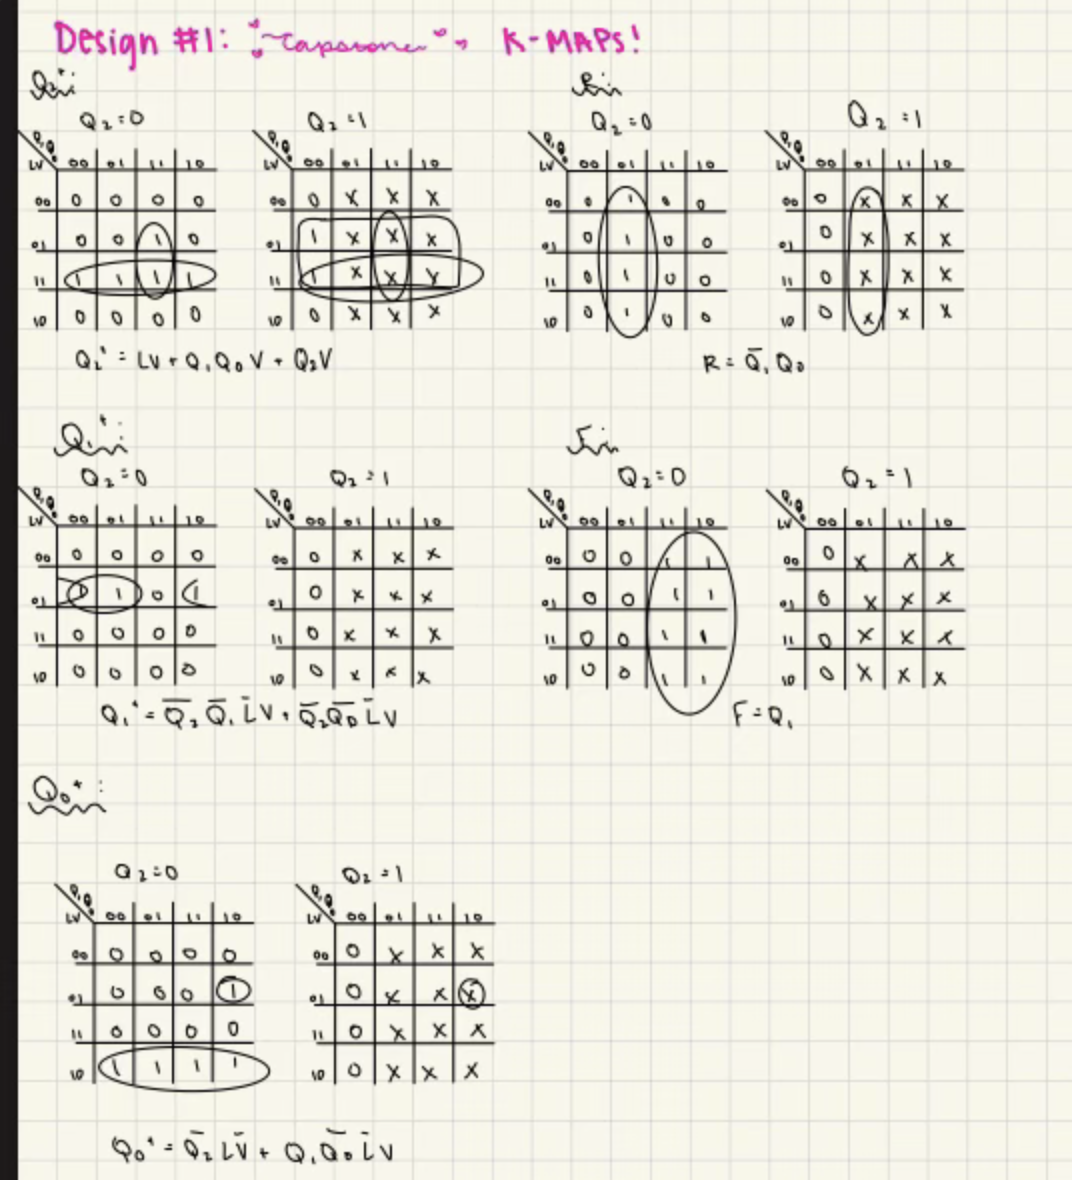 Design #1: "Capstone" K-MAPs!
Q₂⁺:
Q₂=0
Q₁Q₀
LV 00 01 11 10
00 0 0 0 0
01 0 0 1 0
11 1 1 1 1
10 0 0 0 0
Q₂=1
Q₁Q₀
LV 00 01 11 10
00 0 X X X
01 1 X X X
11 1 X X X
10 0 X X X
Q₂⁺ = LV + Q₁Q₀V + Q₂V
R:
Q₂=0
Q₁Q₀
LV 00 01 11 10
00 0 1 0 0
01 0 1 0 0
11 0 1 0 0
10 0 1 0 0
Q₂=1
Q₁Q₀
LV 00 01 11 10
00 0 X X X
01 0 X X X
11 0 X X X
10 0 X X X
R = Q̄₁Q₀
Q₁⁺:
Q₂=0
Q₁Q₀
LV 00 01 11 10
00 0 0 0 0
01 1 0 1
11 0 0 0 0
10 0 0 0 0
Q₂=1
Q₁Q₀
LV 00 01 11 10
00 0 X X X
01 0 X X X
11 0 X X X
10 0 X X X
Q₁⁺ = Q̄₂Q̄₁L̄V + Q̄₂Q̄₀L̄V
F:
Q₂=0
Q₁Q₀
LV 00 01 11 10
00 0 0 1 1
01 0 0 1 1
11 0 0 1 1
10 0 0 1 1
Q₂=1
Q₁Q₀
LV 00 01 11 10
00 0 X X X
01 0 X X X
11 0 X X X
10 0 X X X
F = Q₁
Q₀⁺:
Q₂=0
Q₁Q₀
LV 00 01 11 10
00 0 0 0 0
01 0 0 0 1
11 0 0 0 0
10 1 1 1 1
Q₂=1
Q₁Q₀
LV 00 01 11 10
00 0 X X X
01 0 X X X
11 0 X X X
10 0 X X X
Q₀⁺ = Q̄₂LV̄ + Q₁Q̄₀L̄V